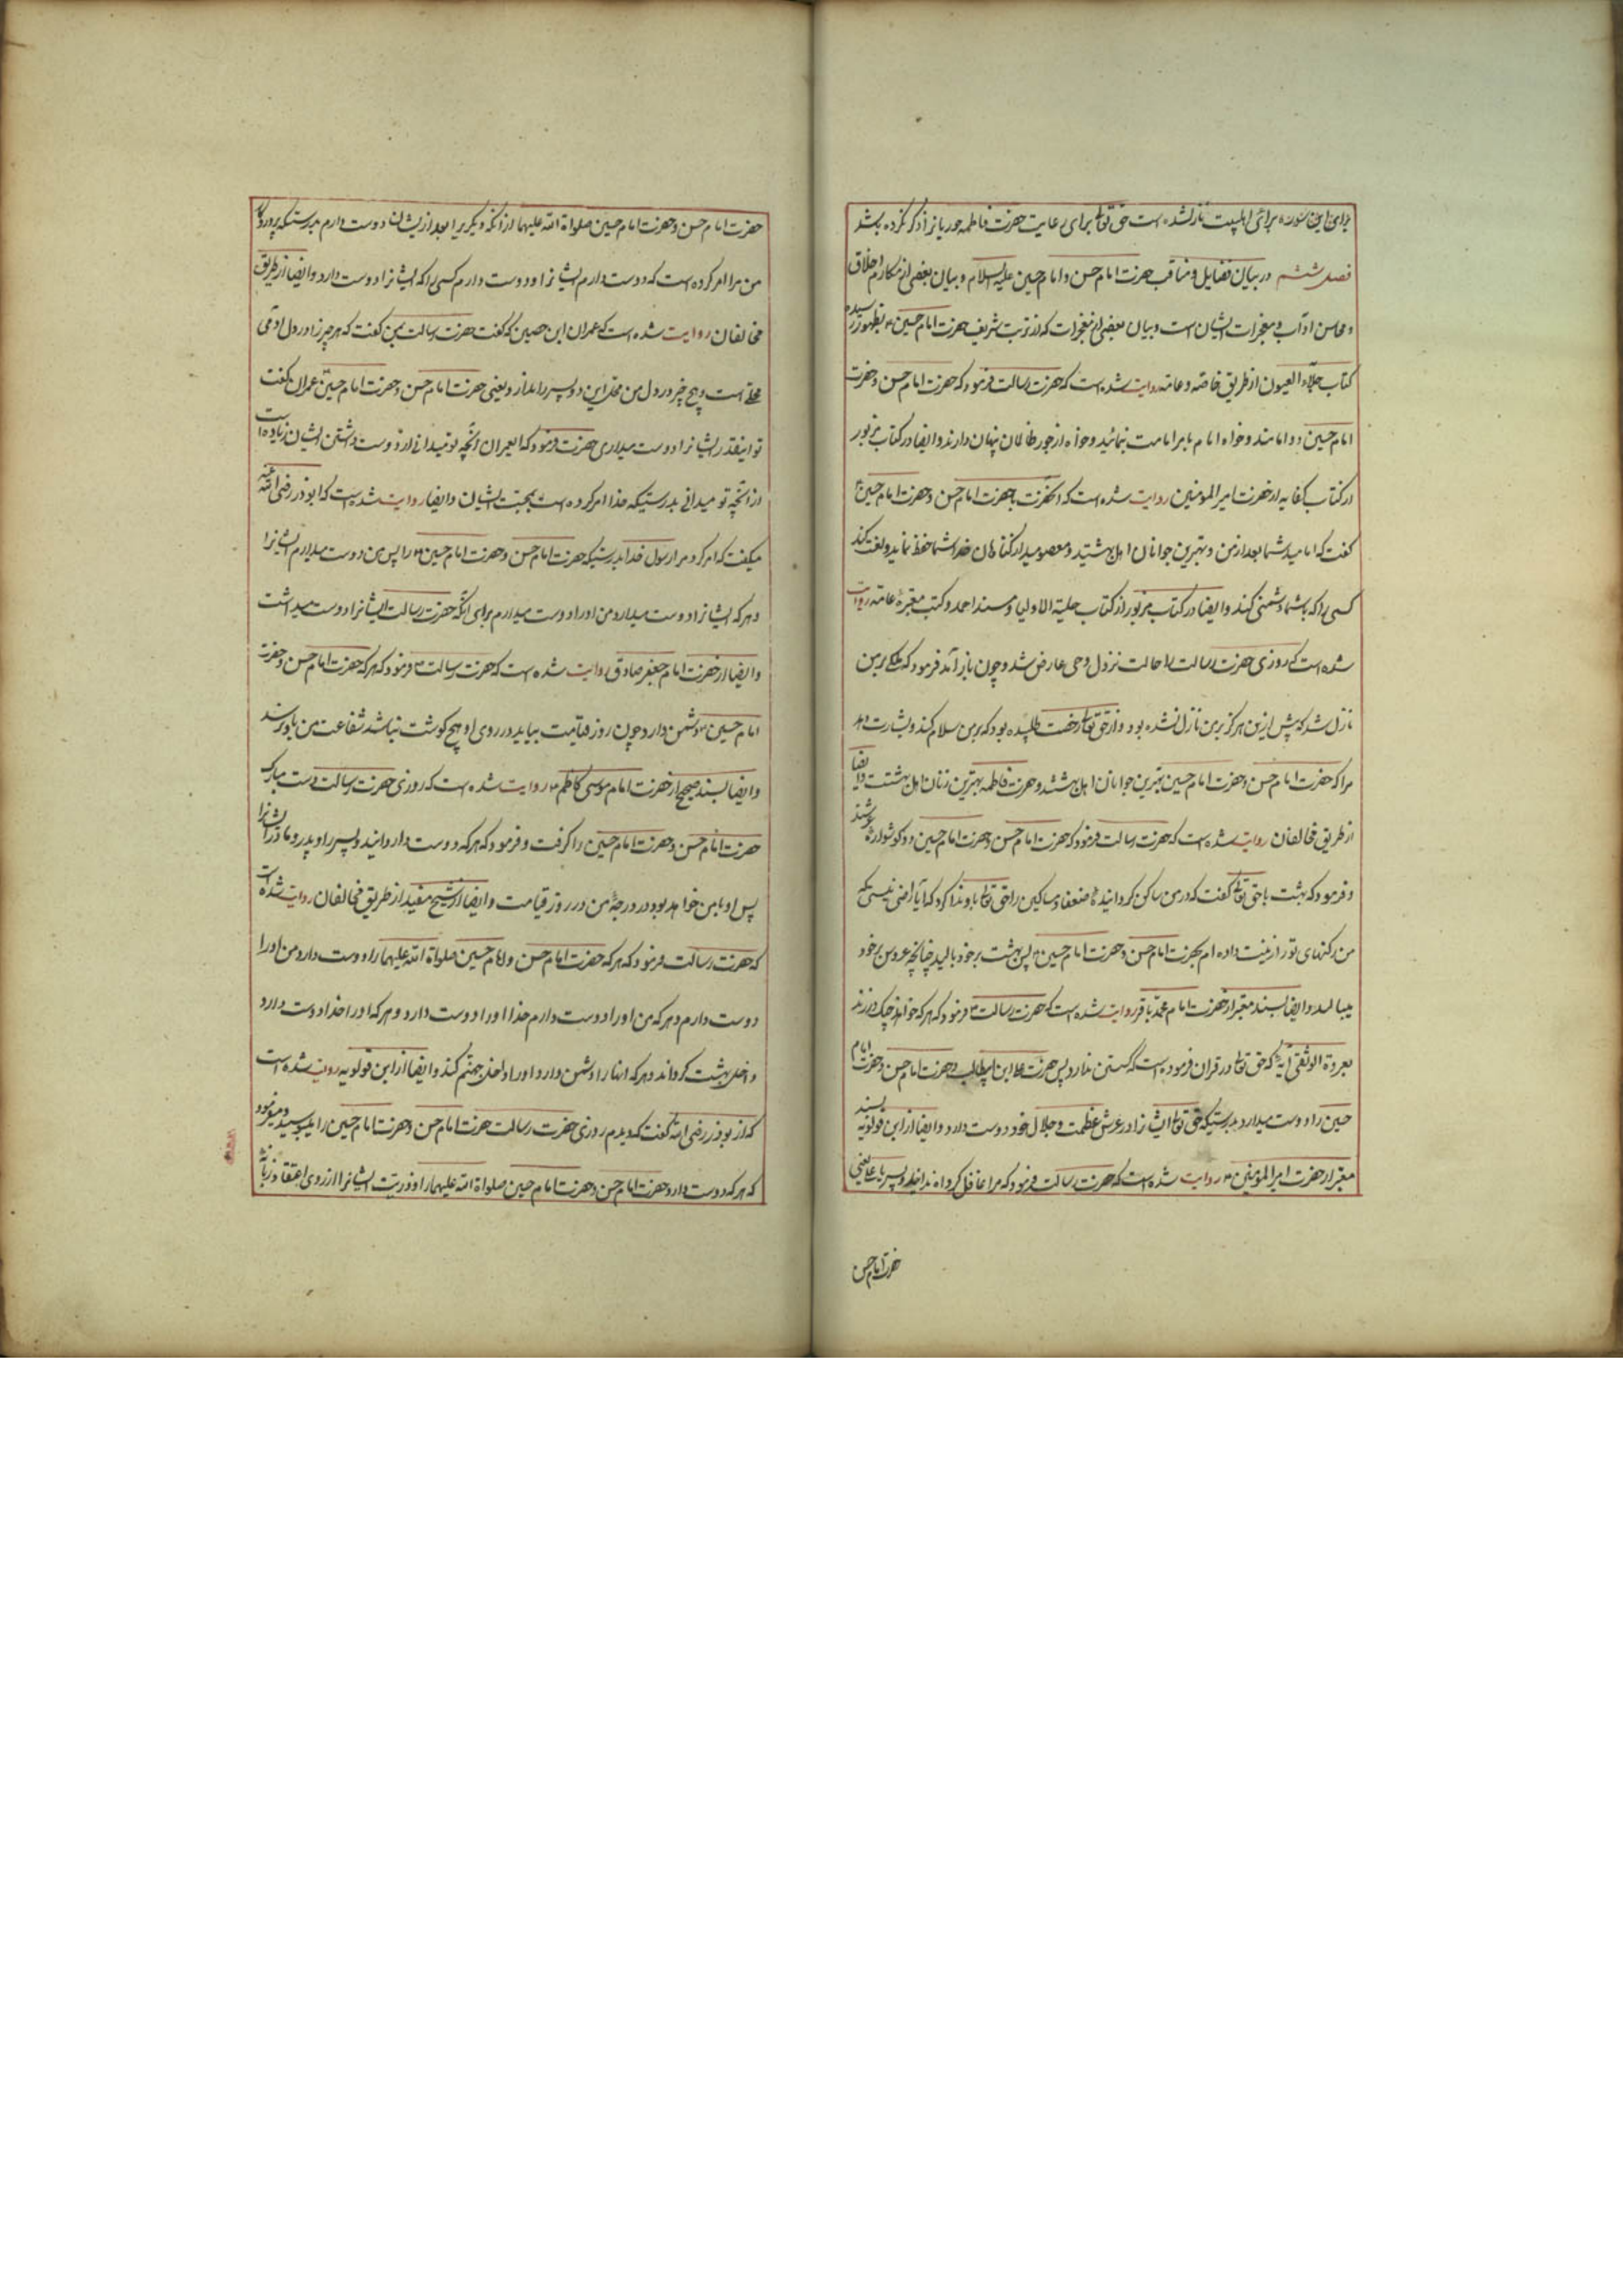 برای این سوره برای اهلبیت نازل شده است حق تعالی برای رعایت حضرت فاطمه حوریانرا ذکر نکرده باشد
فصل ششم در بیان فضایل و مناقب حضرت امام حسن و امام حسین علیه السلام و بیان بعضی از مکارم اخلاق
و محاسن آداب و معجزات ایشان است و بیان بعضی از معجزات که از تربت شریف حضرت امام حسین بظهور رسیده
کتاب جلاء العیون از طریق خاصه و عامه روایت شده است که حضرت رسالت فرمود که حضرت امام حسن و حضرت
امام حسین دو امامند و خواه امام بامر امامت نمایند و خواه از جور ظالمان پنهان دارند و ایضا در کتاب مزبور
از کتاب کفایه از حضرت امیر المومنین روایت شده است که آنحضرت بحضرت امام حسن و حضرت امام حسین
گفت که امامید شما بعد از من و بهترین جوانان اهل بهشتید و معصومید از گناهان خدا شما را حفظ نماید و لعنت کند
کسی را که باشما دشمنی کند و ایضا در کتاب مزبور از کتاب حلیة الاولیا و مسند احمد و کتب معتبرهٔ عامه روایت
شده است که روزی حضرت رسالت را حالت نزول وحی عارض شد و چون باز آمد فرمود که ملکی بر من
نازل شد که پیش ازین هرگز بر من نازل نشده بود و از حق تعالی رخصت طلبیده بود که بر من سلام کند و بشارت دهد
مرا که حضرت امام حسن و حضرت امام حسین بهترین جوانان اهل بهشتند و حضرت فاطمه بهترین زنان اهل بهشتست و ایضا
از طریق مخالفان روایت شده است که حضرت رسالت فرمود که حضرت امام حسن و حضرت امام حسین دو گوشواره عرشند
و فرمود که بهشت با حق تعالی گفت که در من ساکن گردانیدهٔ ضعفا و مساکین را حق تعالی باو ندا کرد که آیا راضی نیستی که
من رکنهای تو را زینت داده ام بحضرت امام حسن و حضرت امام حسین پس بهشت بر خود بالید چنانچه عروس بر خود
میبالد و ایضا بسند معتبر از حضرت امام محمد باقر روایت شده است که حضرت رسالت فرمود که هر که خواهد چنگ در زند
بعروة الوثقی که حق تعالی در قران فرموده است که گسستن ندارد پس حضرت علی ابن ابیطالب و حضرت امام حسن و حضرت امام
حسین را دوست میدارد بدرستیکه حق تعالی ایشانرا در عرش عظمت و جلال خود دوست دارد و ایضا از ابن قولویه بسند
معتبر از حضرت امیر المومنین روایت شده است که حضرت رسالت فرمود که مرا غافل کرده اند این دو پسر یا علی یعنی
حضرت امام حسن
حضرت امام حسن و حضرت امام حسین صلواة الله علیهما از آنکه دیگریرا بعد از ایشان دوست دارم بدرستیکه پروردگار
من مرا امر کرده است که دوست دارم ایشانرا و دوست دارم کسی را که ایشانرا دوست دارد و ایضا از طریق
مخالفان روایت شده است که عمران ابن حصین که گفت حضرت رسالت بمن گفت که هر چیز را در دل آدمی
محلی است و هیچ چیز در دل من محل این دو پسر را ندارد یعنی حضرت امام حسن و حضرت امام حسین عمران گفت
تو اینقدر ایشانرا دوست میداری حضرت فرمود که ای عمران آنچه تو نمیدانی از دوست داشتن ایشان زیاده است
از آنچه تو میدانی بدرستیکه خدا امر کرده است بمحبت ایشان و ایضا روایت شده است که ابوذر رضی الله عنه
میگفت که امر کرد مرا رسول خدا بدرستیکه حضرت امام حسن و حضرت امام حسین را پس من دوست میدارم ایشانرا
و هر که ایشانرا دوست میدارد من او را دوست میدارم برای آنکه حضرت رسالت ایشانرا دوست میداشت
و ایضا از حضرت امام جعفر صادق روایت شده است که حضرت رسالت فرمود که هر که حضرت امام حسن و حضرت
امام حسین را دشمن دارد چون روز قیامت بیاید در روی او هیچ گوشت نباشد شفاعت من باو نرسد
و ایضا بسند صحیح از حضرت امام موسی کاظم روایت شده است که روزی حضرت رسالت دست مبارک
حضرت امام حسن و حضرت امام حسین را گرفت و فرمود که هر که دوست دارد این دو پسر را و پدر و مادر ایشانرا
پس او با من خواهد بود در درجهٔ من در روز قیامت و ایضا از شیخ مفید از طریق مخالفان روایت شده است
که حضرت رسالت فرمود که هر که حضرت امام حسن و امام حسین صلواة الله علیهما را دوست دارد من او را
دوست دارم و هر که من او را دوست دارم خدا او را دوست دارد و هر که او را خدا دوست دارد
داخل بهشت گرداند و هر که اینها را دشمن دارد او را داخل جهنم کند و ایضا از ابن قولویه روایت شده است
که از ابوذر رضی الله گفت که دیدم روزی حضرت رسالت حضرت امام حسن و حضرت امام حسین را میبوسید و میفرمود
که هر که دوست دارد حضرت امام حسن و حضرت امام حسین صلواة الله علیهما را و ذریت ایشانرا از روی اعتقاد